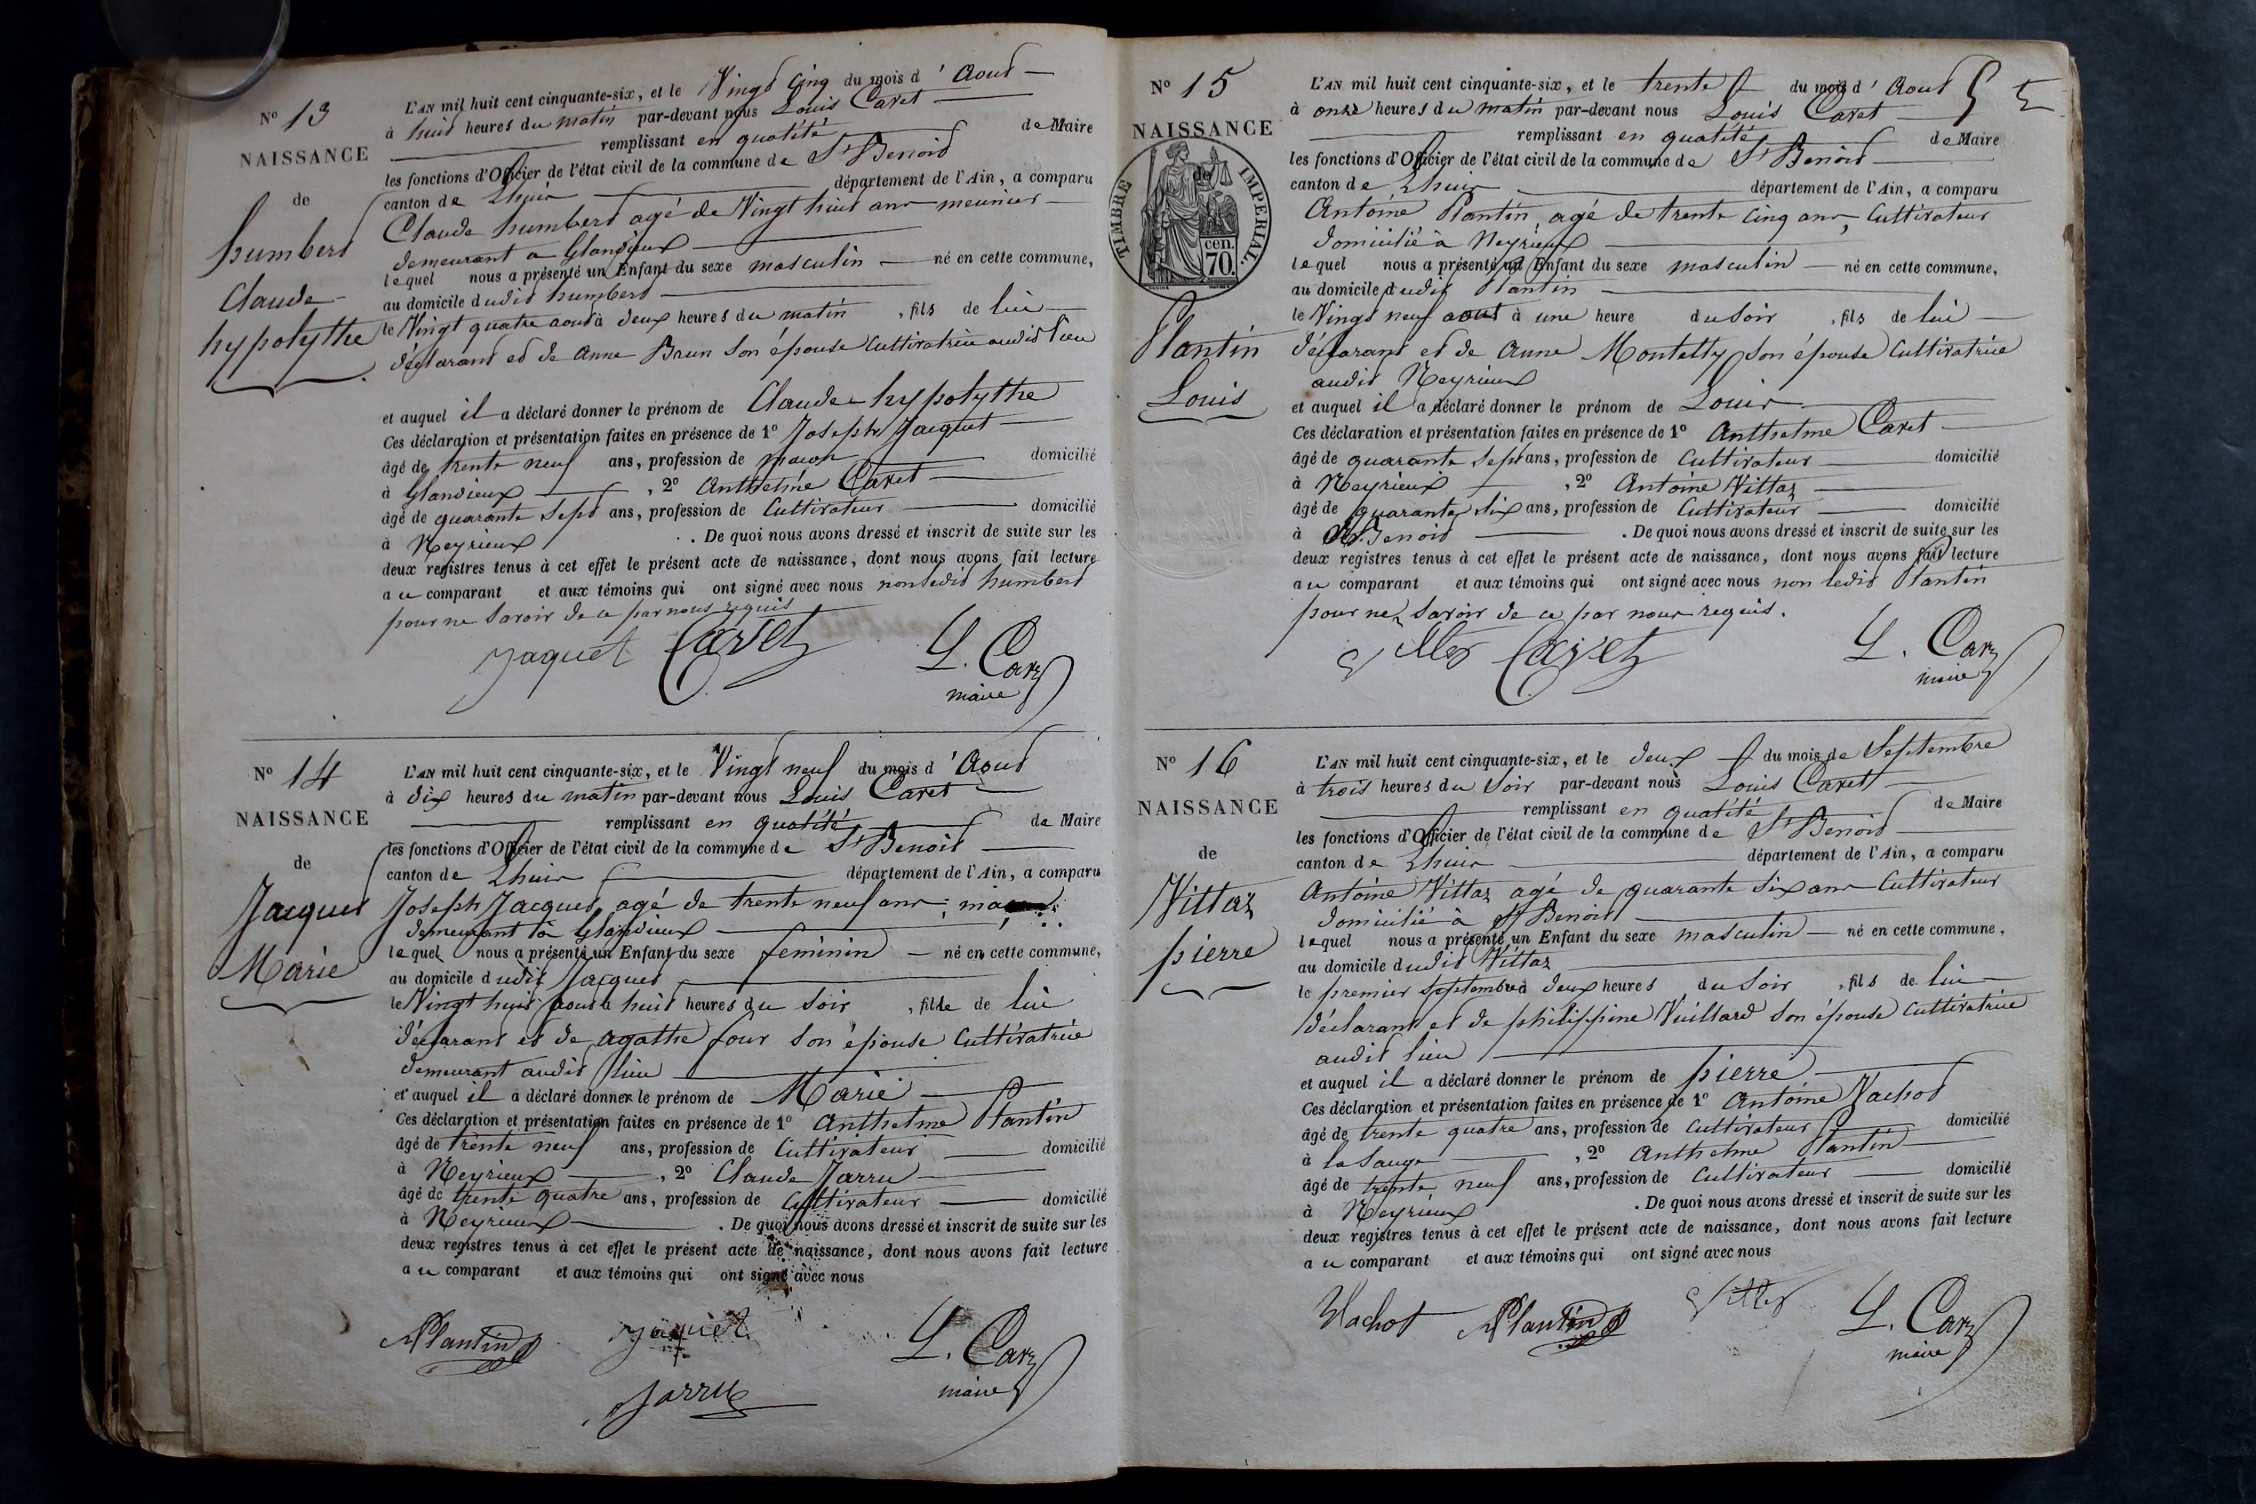 N° 13
NAISSANCE
de
humbert
Claude
hypolythe
L'AN mil huit cent cinquante-six, et le Vingt Cinq du mois d'Aout
à huit heures du matin par-devant nous Louis Cavet
remplissant en qualité de Maire
les fonctions d'Officier de l'état civil de la commune de St Benoit
canton de Lhuis département de l'Ain, a comparu
Claude humbert agé de Vingt huit ans meunier
demeurant a Glandieux
lequel nous a présenté un Enfant du sexe masculin né en cette commune,
au domicile dudit humbert
le Vingt quatre aout à deux heures du matin, fils de lui
déclarant et de anne Brun son épouse Cultivatrice audit lieu
et auquel il a déclaré donner le prénom de Claude hypolythe
Ces déclaration et présentation faites en présence de 1° Joseph Jacquet
âgé de trente neuf ans, profession de maçon domicilié
à Glandieux, 2° Anthelme Cavet
âgé de quarante Sept ans, profession de Cultivateur domicilié
à Neyrieux. De quoi nous avons dressé et inscrit de suite sur les
deux registres tenus à cet effet le présent acte de naissance, dont nous avons fait lecture
au comparant et aux témoins qui ont signé avec nous non ledit humbert
pour ne Savoir de ce par nous requis
Jaquet Cavet L. Cavet
maire
N° 14
NAISSANCE
de
Jacquet
Marie
L'AN mil huit cent cinquante-six, et le Vingt neuf du mois d'Aout
à dix heures du matin par-devant nous Louis Cavet
remplissant en qualité de Maire
les fonctions d'Officier de l'état civil de la commune de St Benoit
canton de Lhuis département de l'Ain, a comparu
Joseph Jacquet, agé de trente neuf ans,
demeurant à Glandieux
lequel nous a présenté un Enfant du sexe feminin né en cette commune,
au domicile dudit Jacquet
le Vingt huit aout à huit heures du soir, fille de lui
déclarant et de agathe four son épouse Cultivatrice
demeurant audit lieu
et auquel il a déclaré donner le prénom de Marie
Ces déclaration et présentation faites en présence de 1° Anthelme Plantin
âgé de trente neuf ans, profession de Cultivateur domicilié
à Neyrieux, 2° Claude Jarru
âgé de trente quatre ans, profession de Cultivateur domicilié
à Neyrieux. De quoi nous avons dressé et inscrit de suite sur les
deux registres tenus à cet effet le présent acte de naissance, dont nous avons fait lecture
au comparant et aux témoins qui ont signé avec nous
APlantin Jaquet L. Cavet
maire
Jarru
N° 15
NAISSANCE
de
TIMBRE IMPERIAL.
70 cen.
Plantin
Louis
L'AN mil huit cent cinquante-six, et le trente du mois d'Aout 5
à onze heures du matin par-devant nous Louis Cavet
remplissant en qualité de Maire
les fonctions d'Officier de l'état civil de la commune de St Benoit
canton de Lhuis département de l'Ain, a comparu
Antoine Plantin agé de trente Cinq ans, Cultivateur
domicilié à Neyrieux
lequel nous a présenté un Enfant du sexe masculin né en cette commune,
au domicile dudit Plantin
le Vingt neuf aout à une heure du Soir, fils de lui
déclarant et de anne Montelty son épouse Cultivatrice
audit Neyrieux
et auquel il a déclaré donner le prénom de Louis
Ces déclaration et présentation faites en présence de 1° Anthelme Cavet
âgé de quarante Sept ans, profession de Cultivateur domicilié
à Neyrieux, 2° Antoine Vittaz
âgé de quarante Six ans, profession de Cultivateur domicilié
à St Benoit. De quoi nous avons dressé et inscrit de suite sur les
deux registres tenus à cet effet le présent acte de naissance, dont nous avons fait lecture
au comparant et aux témoins qui ont signé avec nous non ledit Plantin
pour ne Savoir de ce par nous requis.
Cavet L. Cavet
maire
N° 16
NAISSANCE
de
Vittaz
pierre
L'AN mil huit cent cinquante-six, et le deux du mois de Septembre
à trois heures du Soir par-devant nous Louis Cavet
remplissant en qualité de Maire
les fonctions d'Officier de l'état civil de la commune de St Benoit
canton de Lhuis département de l'Ain, a comparu
Antoine Vittaz agé de quarante Six ans Cultivateur
domicilié à St Benoit
lequel nous a présenté un Enfant du sexe masculin né en cette commune,
au domicile dudit Vittaz
le premier Septembre à deux heures du Soir, fils de lui
déclarant et de philippine Vuillard son épouse Cultivatrice
audit lieu
et auquel il a déclaré donner le prénom de pierre
Ces déclaration et présentation faites en présence de 1° Antoine Vachot
âgé de trente quatre ans, profession de Cultivateur domicilié
à la Sauge, 2° Anthelme Plantin
âgé de trente neuf ans, profession de Cultivateur domicilié
à Neyrieux. De quoi nous avons dressé et inscrit de suite sur les
deux registres tenus à cet effet le présent acte de naissance, dont nous avons fait lecture
au comparant et aux témoins qui ont signé avec nous
Vachot APlantin L. Cavet
maire